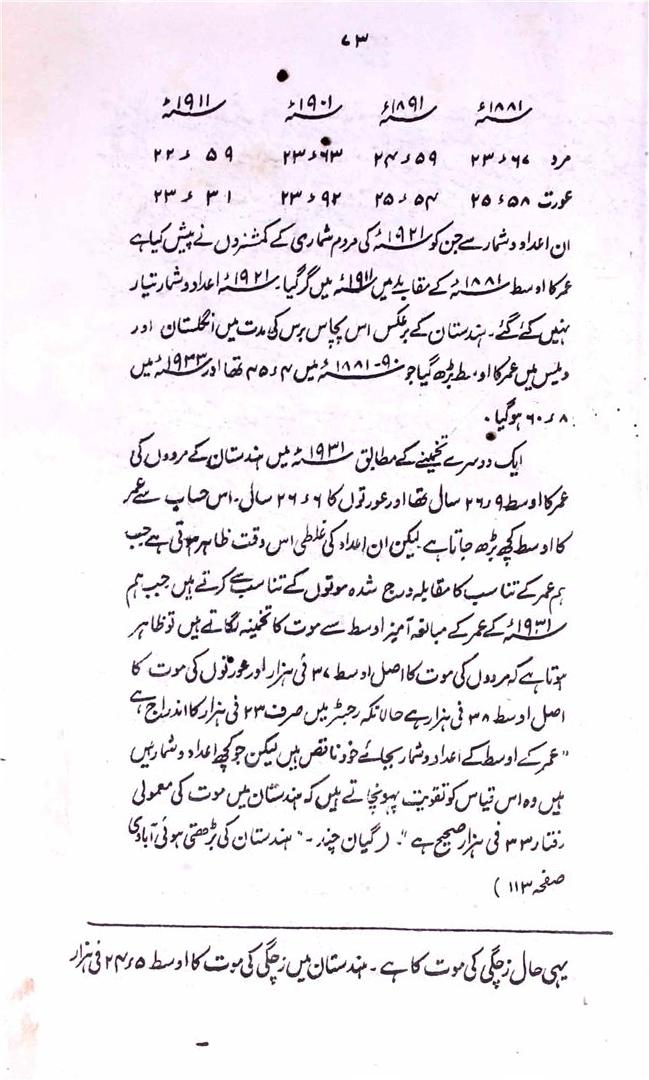 ۷۳
۱۸۸۱ء ۱۸۹۱ء ۱۹۰۱ء ۱۹۱۱ء
مرد ۶۷ء۲۳ ۵۹ء۲۴ ۶۳ء۲۳ ۵۹ء۲۲
عورت ۵۸ء۲۵ ۵۴ء۲۵ ۹۲ء۲۳ ۳۱ء۲۳
ان اعداد و شمار سے جن کو ۱۹۲۱ء کی مردم شماری کے کمشنروں نے پیش کیا ہے
عمر کا اوسط ۱۸۸۱ء کے مقابلے میں ۱۹۱۱ء میں گر گیا۔ ۱۹۲۱ء اعداد و شمار تیار
نہیں کئے گئے۔ ہندستان کے برعکس اس پچاس برس کی مدت میں انگلستان اور
ویلیس میں عمر کا اوسط بڑھ گیا جو ۹۰-۱۸۸۱ء میں ۴ء۴۵ تھا اور ۱۹۳۳ء میں
۸ء۶۰ ہوگیا۔
ایک دوسرے تخمینے کے مطابق ۱۹۳۱ء میں ہندستان کے مردوں کی
عمر کا اوسط ۹ء۲۶ سال تھا اور عورتوں کا ۶ء۲۶ سال۔ اس حساب سے عمر
کا اوسط کچھ بڑھ جاتا ہے لیکن ان اعداد کی غلطی اس وقت ظاہر ہوتی ہے جب
ہم عمر کے تناسب کا مقابلہ درج شدہ موتوں کے تناسب سے کرتے ہیں جب ہم
۱۹۳۱ء کے عمر کے مبالغہ آمیز اوسط سے موت کا تخمینہ لگاتے ہیں تو ظاہر
ہوتا ہے کہ مردوں کی موت کا اصل اوسط ۳۷ فی ہزار اور عورتوں کی موت کا
اصل اوسط ۳۸ فی ہزار ہے حالانکہ رجسٹر میں صرف ۲۳ فی ہزار کا اندراج ہے
"عمر کے اوسط کے اعداد و شمار بجائے خود ناقص ہیں لیکن جو کچھ اعداد و شمار ہیں
ہیں وہ اس قیاس کو تقویت پہونچاتے ہیں کہ ہندستان میں موت کی معمولی
رفتار ۳۳ فی ہزار صحیح ہے"۔ (گیان چند۔ "ہندستان کی بڑھتی ہوئی آبادی
صفحہ ۱۱۳)
یہی حال زچگی کی موت کا ہے۔ ہندستان میں زچگی کی موت کا اوسط ۵ء۲۴ فی ہزار